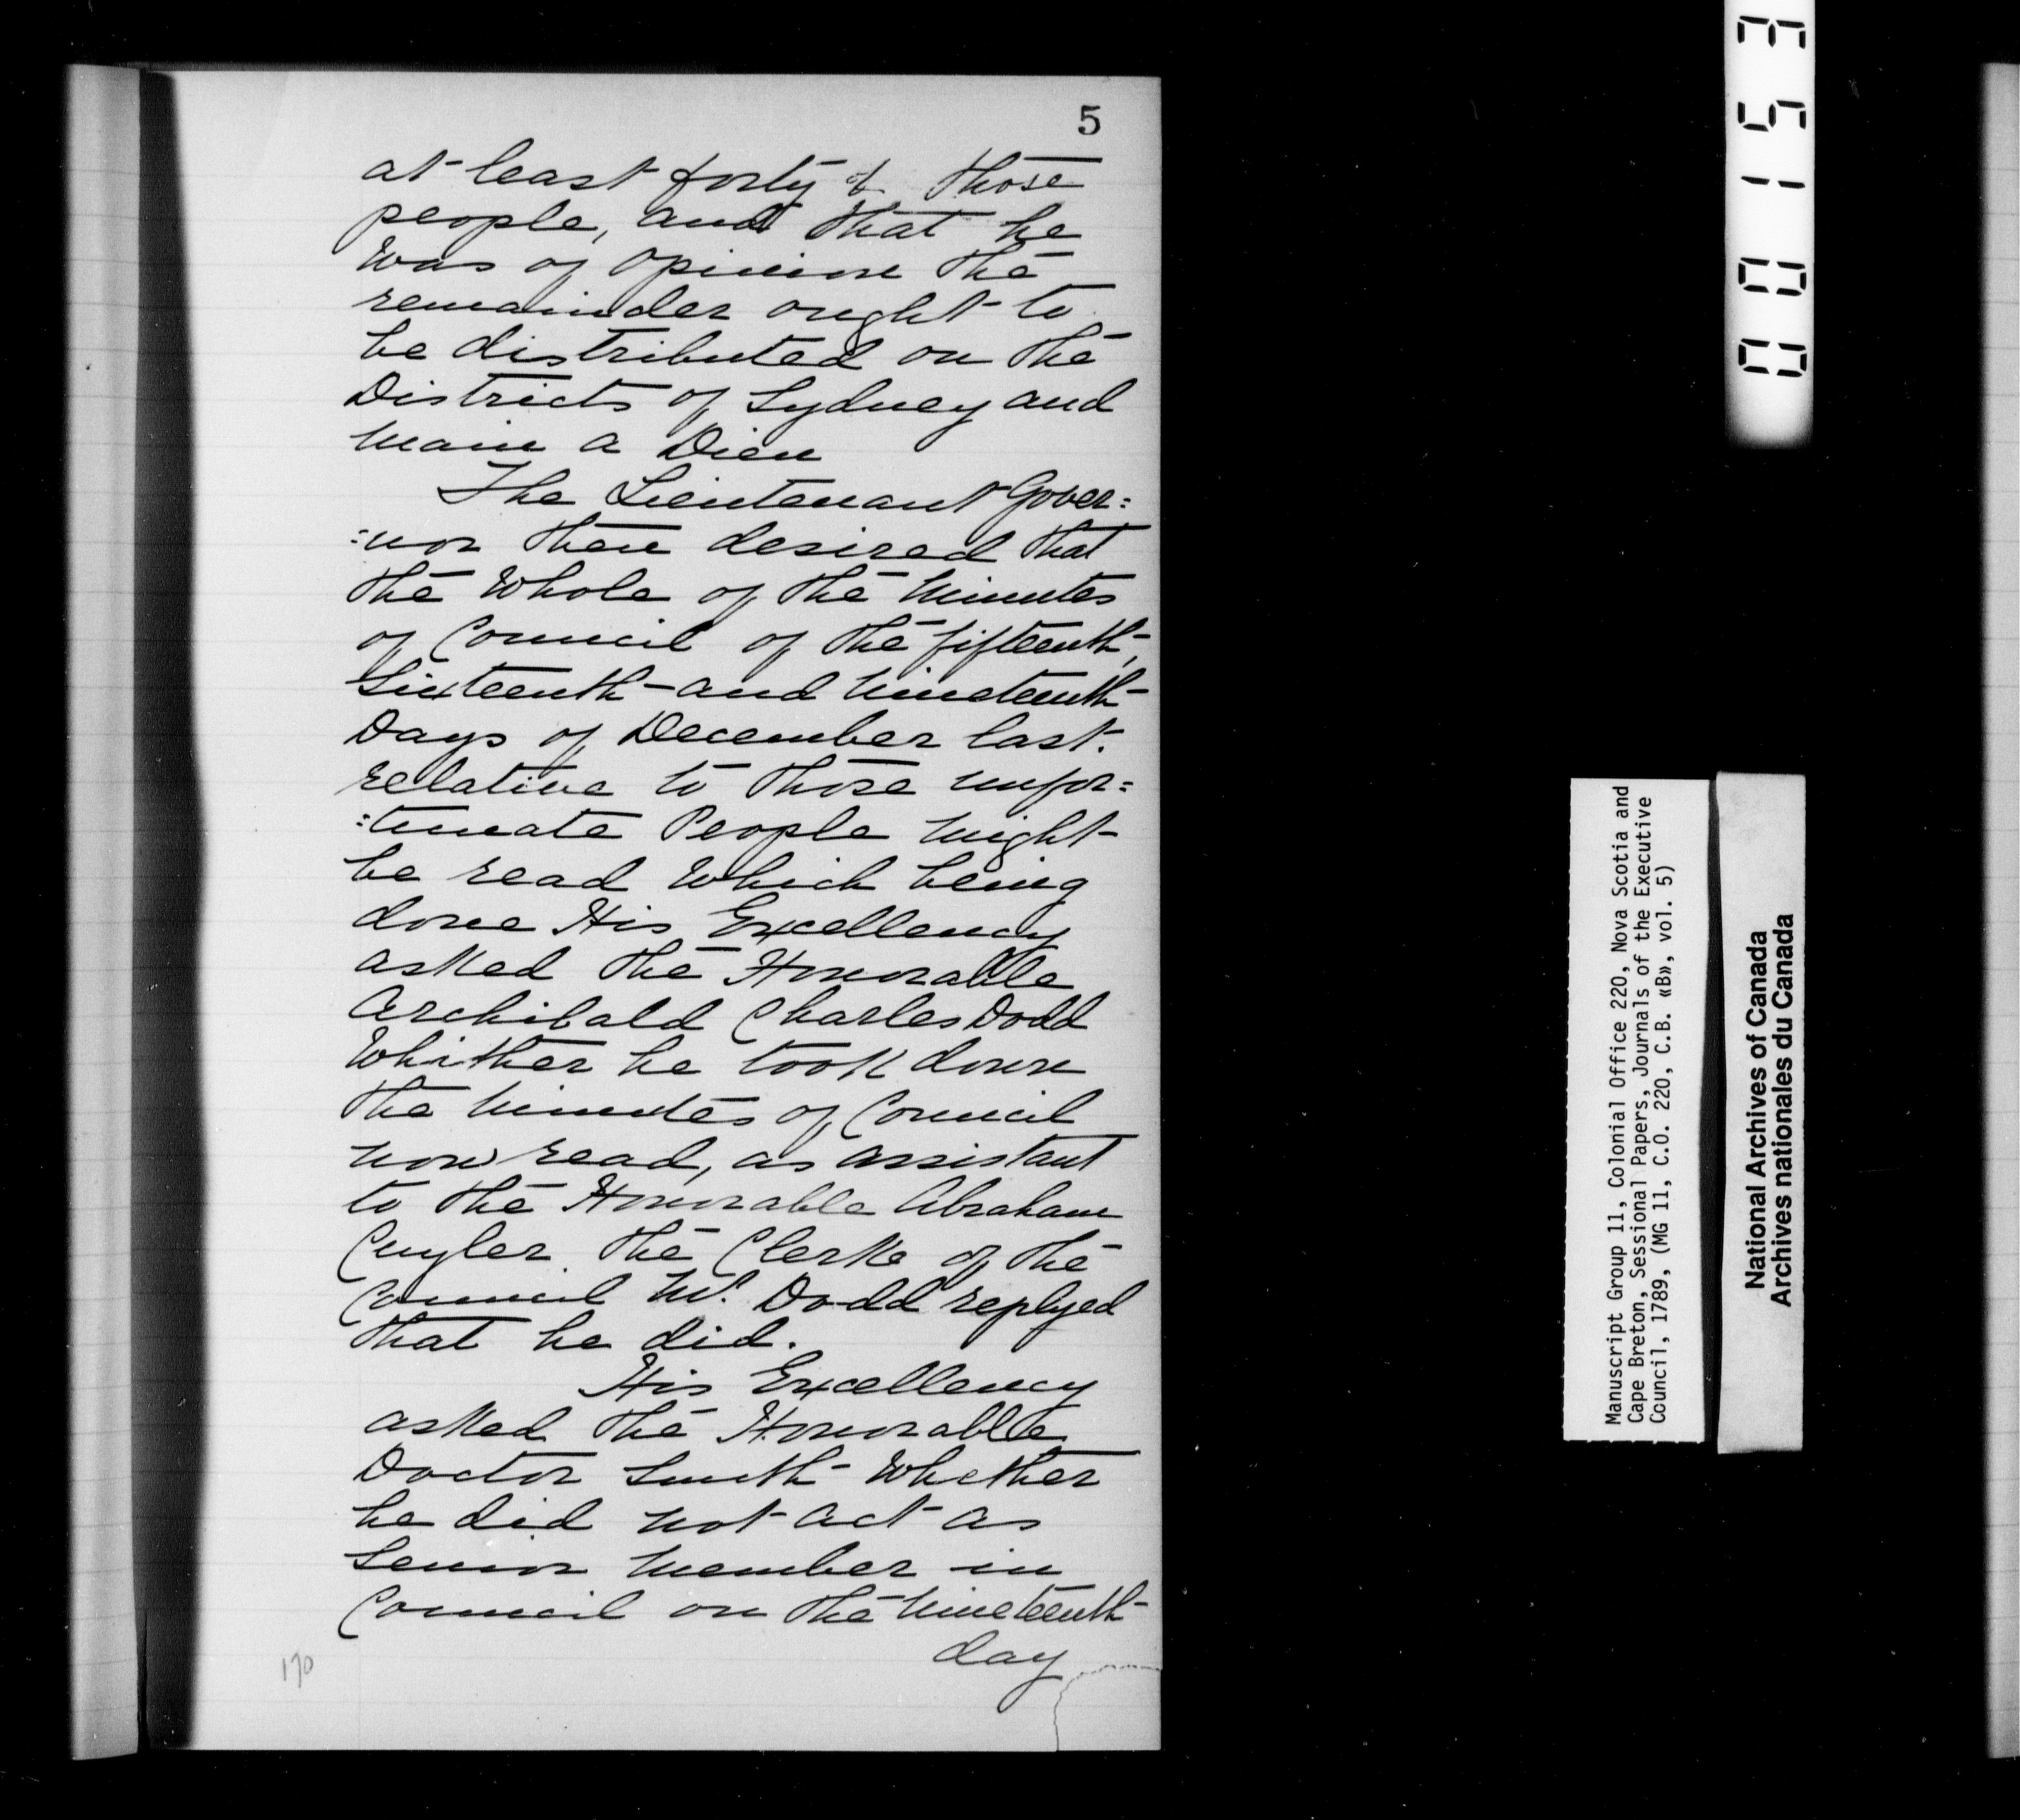 5
at least forty of those
people, and that he
was of opinion the
remainder ought to
be distributed on the
Districts of Sydney and
Main a Dieu
The Lieutenant Gover=
=nor then desired that
the Whole of the Minutes
of Council of the fifteenth,
Sixteenth and Nineteenth
Days of December last.
relative to those unfor=
=tunate People Might
be read Which being
done His Excellency
asked the Honorable
Archibald Charles Dodd
Whither he took down
the Minutes of Council
now read, as assistant
to the Honorable Abraham
Cuyler the Clerke of the
Council Mr. Dodd replyed
that he did.
His Excellency
asked the Honorable
Doctor Smith Whether
he did not act as
Senior Member in
Council on the Nineteenth
day
170
00153
Manuscript Group 11, Colonial Office 220, Nova Scotia and
Cape Breton, Sessional Papers, Journals of the Executive
Council, 1789, (MG 11, C.O. 220, C.B. «B», vol. 5)
National Archives of Canada
Archives nationales du Canada